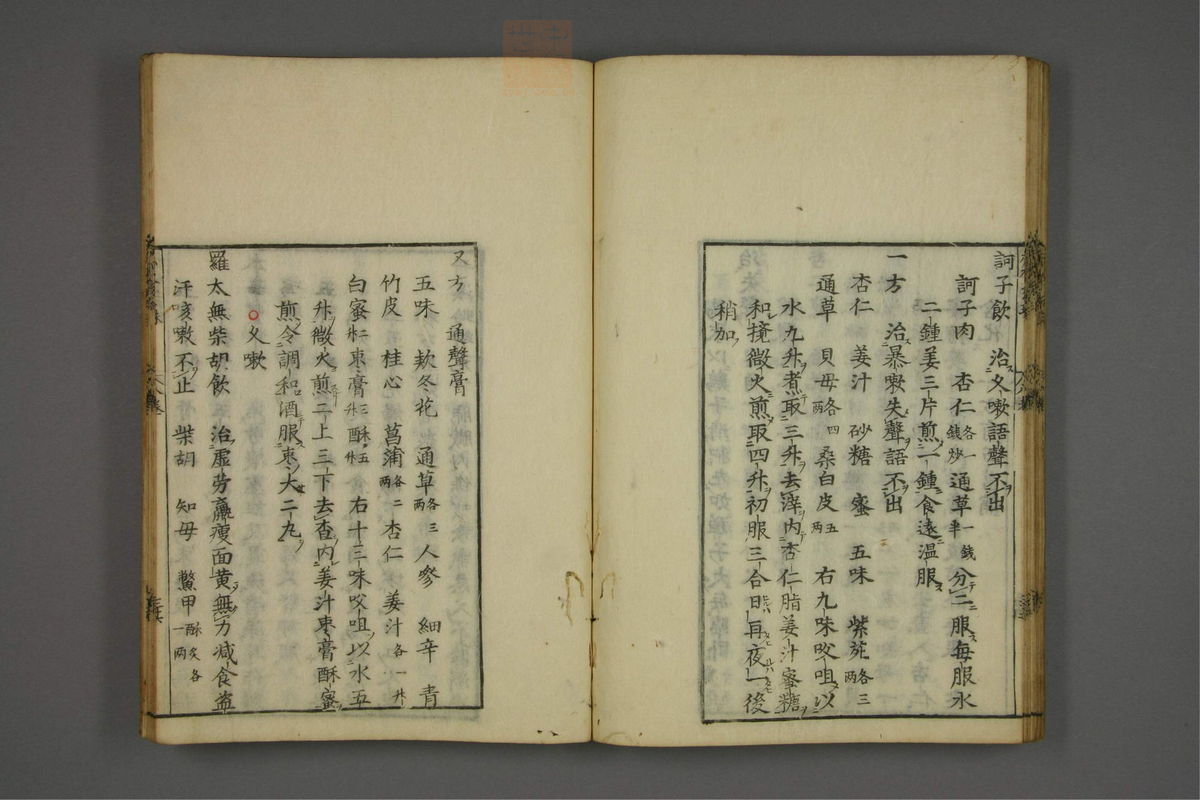 訶子飲　治久嗽語聲不出
訶子肉　杏仁各一錢炒　通草一錢半　分二服每服水
二鍾姜三片煎一鍾食遠溫服
一方　治暴嗽失聲語不出
杏仁　姜汁　砂糖　蜜　五味　紫菀各三兩
通草　貝母各四兩　桑白皮五兩　右九味㕮咀以
水九升煮取三升去滓內杏仁脂姜汁蜜糖
和攪微火煎取四升初服三合日再夜一後
稍加
又方　通聲膏
五味　款冬花　通草各三兩　人參　細辛　青
竹皮　桂心　菖蒲各二兩　杏仁　姜汁各一升
白蜜二升　枣膏三升　酥五升　右十三味㕮咀以水五
升微火煎三上三下去査內姜汁枣膏酥蜜
煎令調和酒服枣大二丸
○久嗽
羅太無柴胡飲　治虛劳羸瘦面黄無力減食盗
汗咳嗽不止　柴胡　知母　鱉甲酥炙各一兩